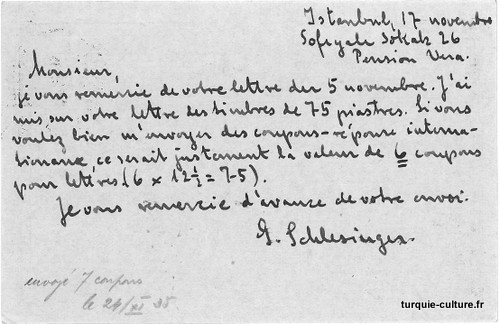 Istanbul, 17 novembre
Sofyale Sokak 26
Pension Vera.
Monsieur,
je vous remercie de votre lettre du 5 novembre. J'ai
mis sur votre lettre des timbres de 75 piastres. Si vous
voulez bien m'envoyer des coupons-réponse interna-
tionaux, ce serait justement la valeur de 6 coupons
pour lettres (6 x 12½ = 75).
Je vous remercie d'avance de votre envoi.
G. Schlesinger.
envoyé 7 coupons
le 24/XI 35
turquie-culture.fr